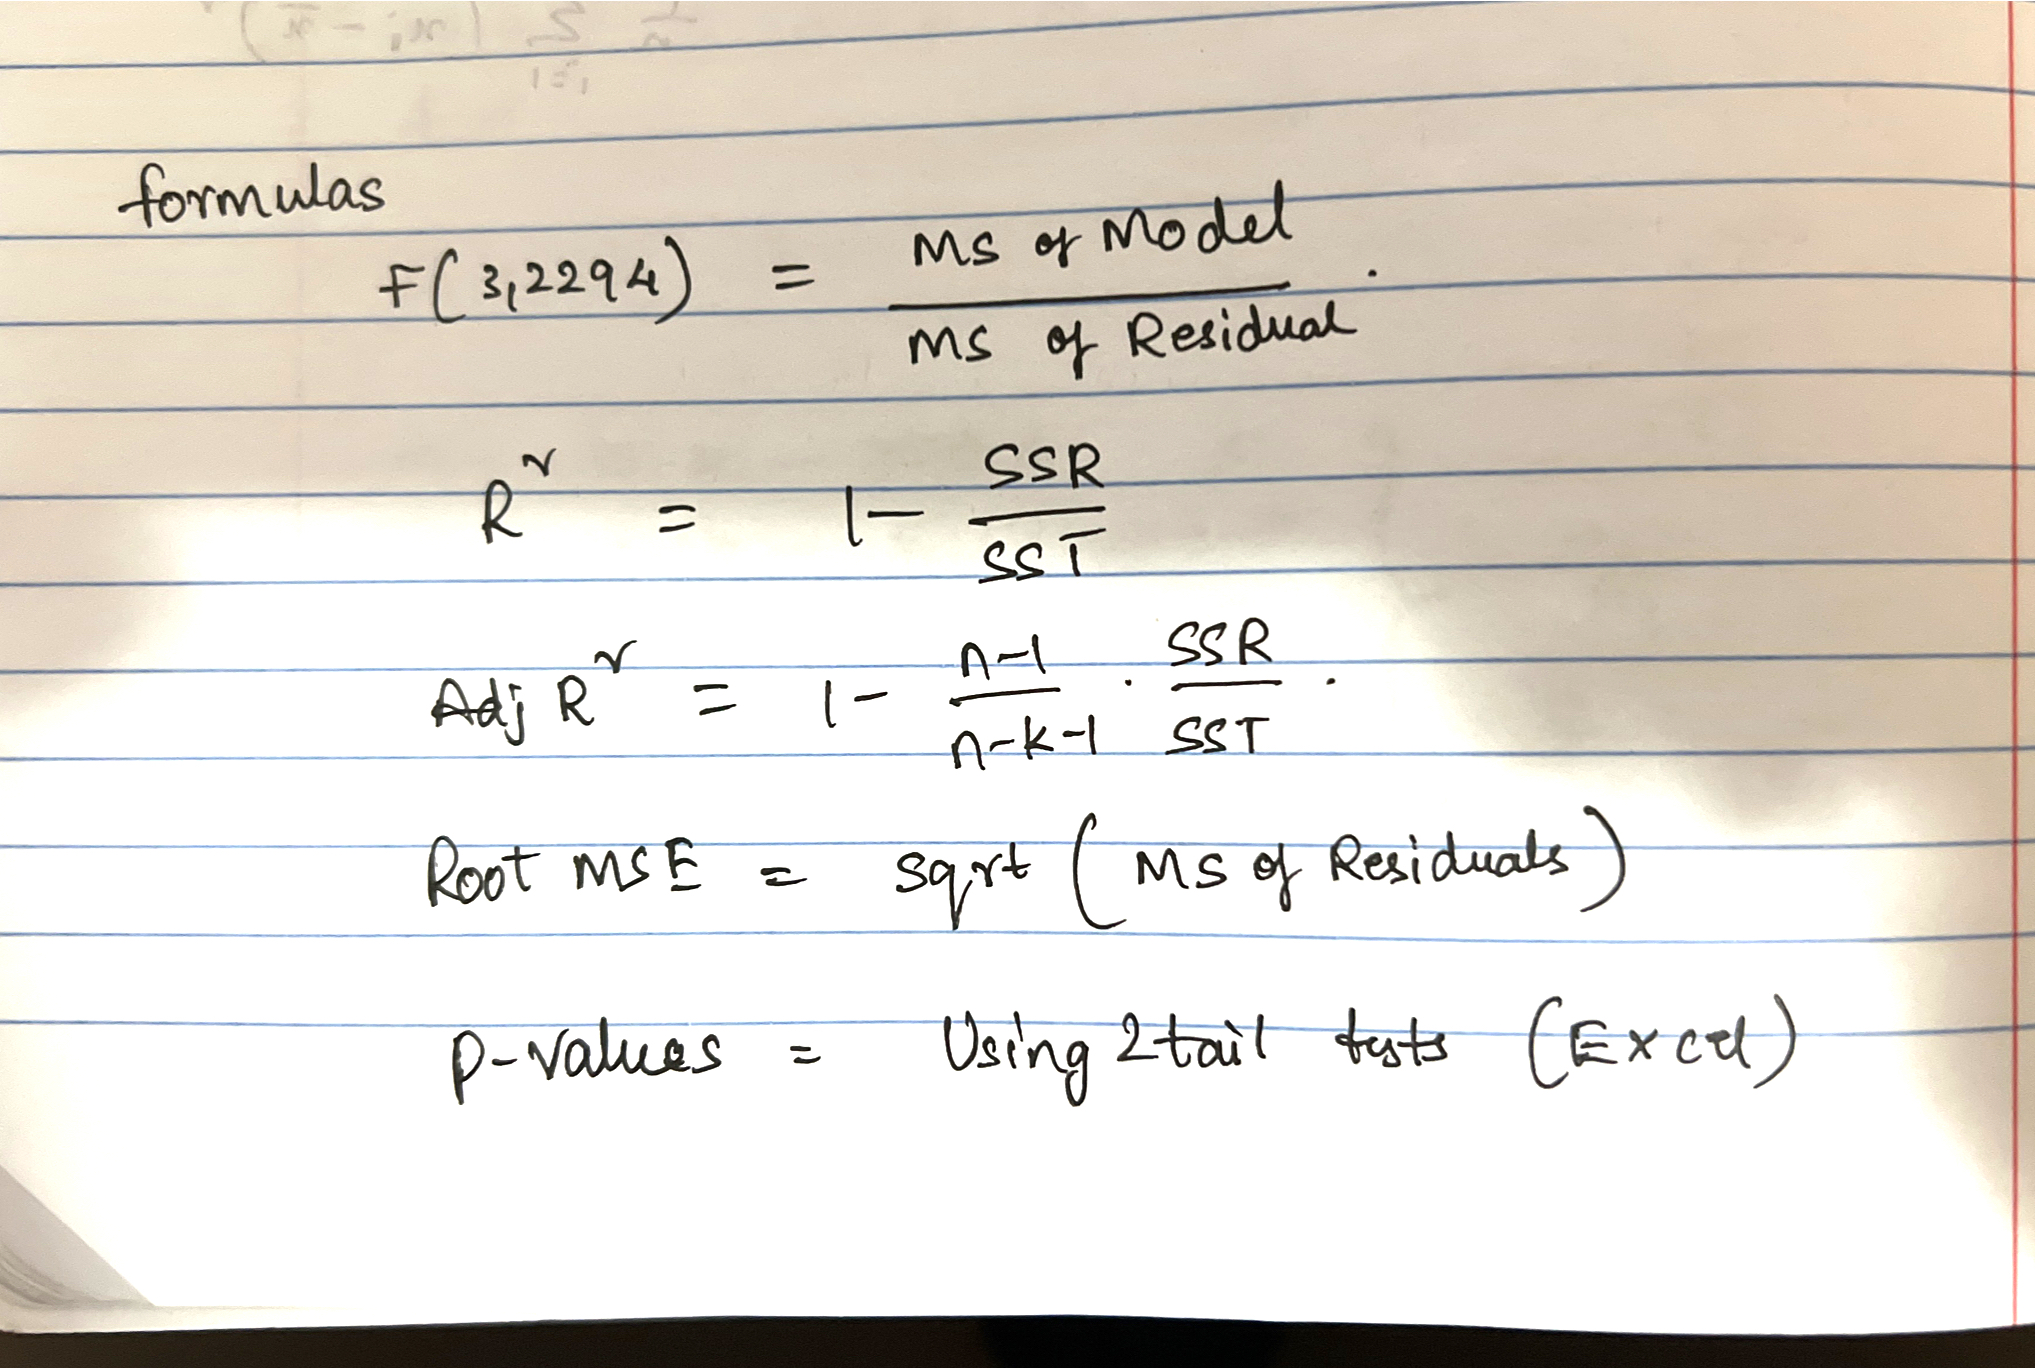 formulas
F(3,2294) = MS of Model / MS of Residual.
R² = 1 - SSR / SST
Adj R² = 1 - n-1 / n-k-1 · SSR / SST .
Root MSE = sqrt (MS of Residuals)
p-values = Using 2tail tests (Excel)